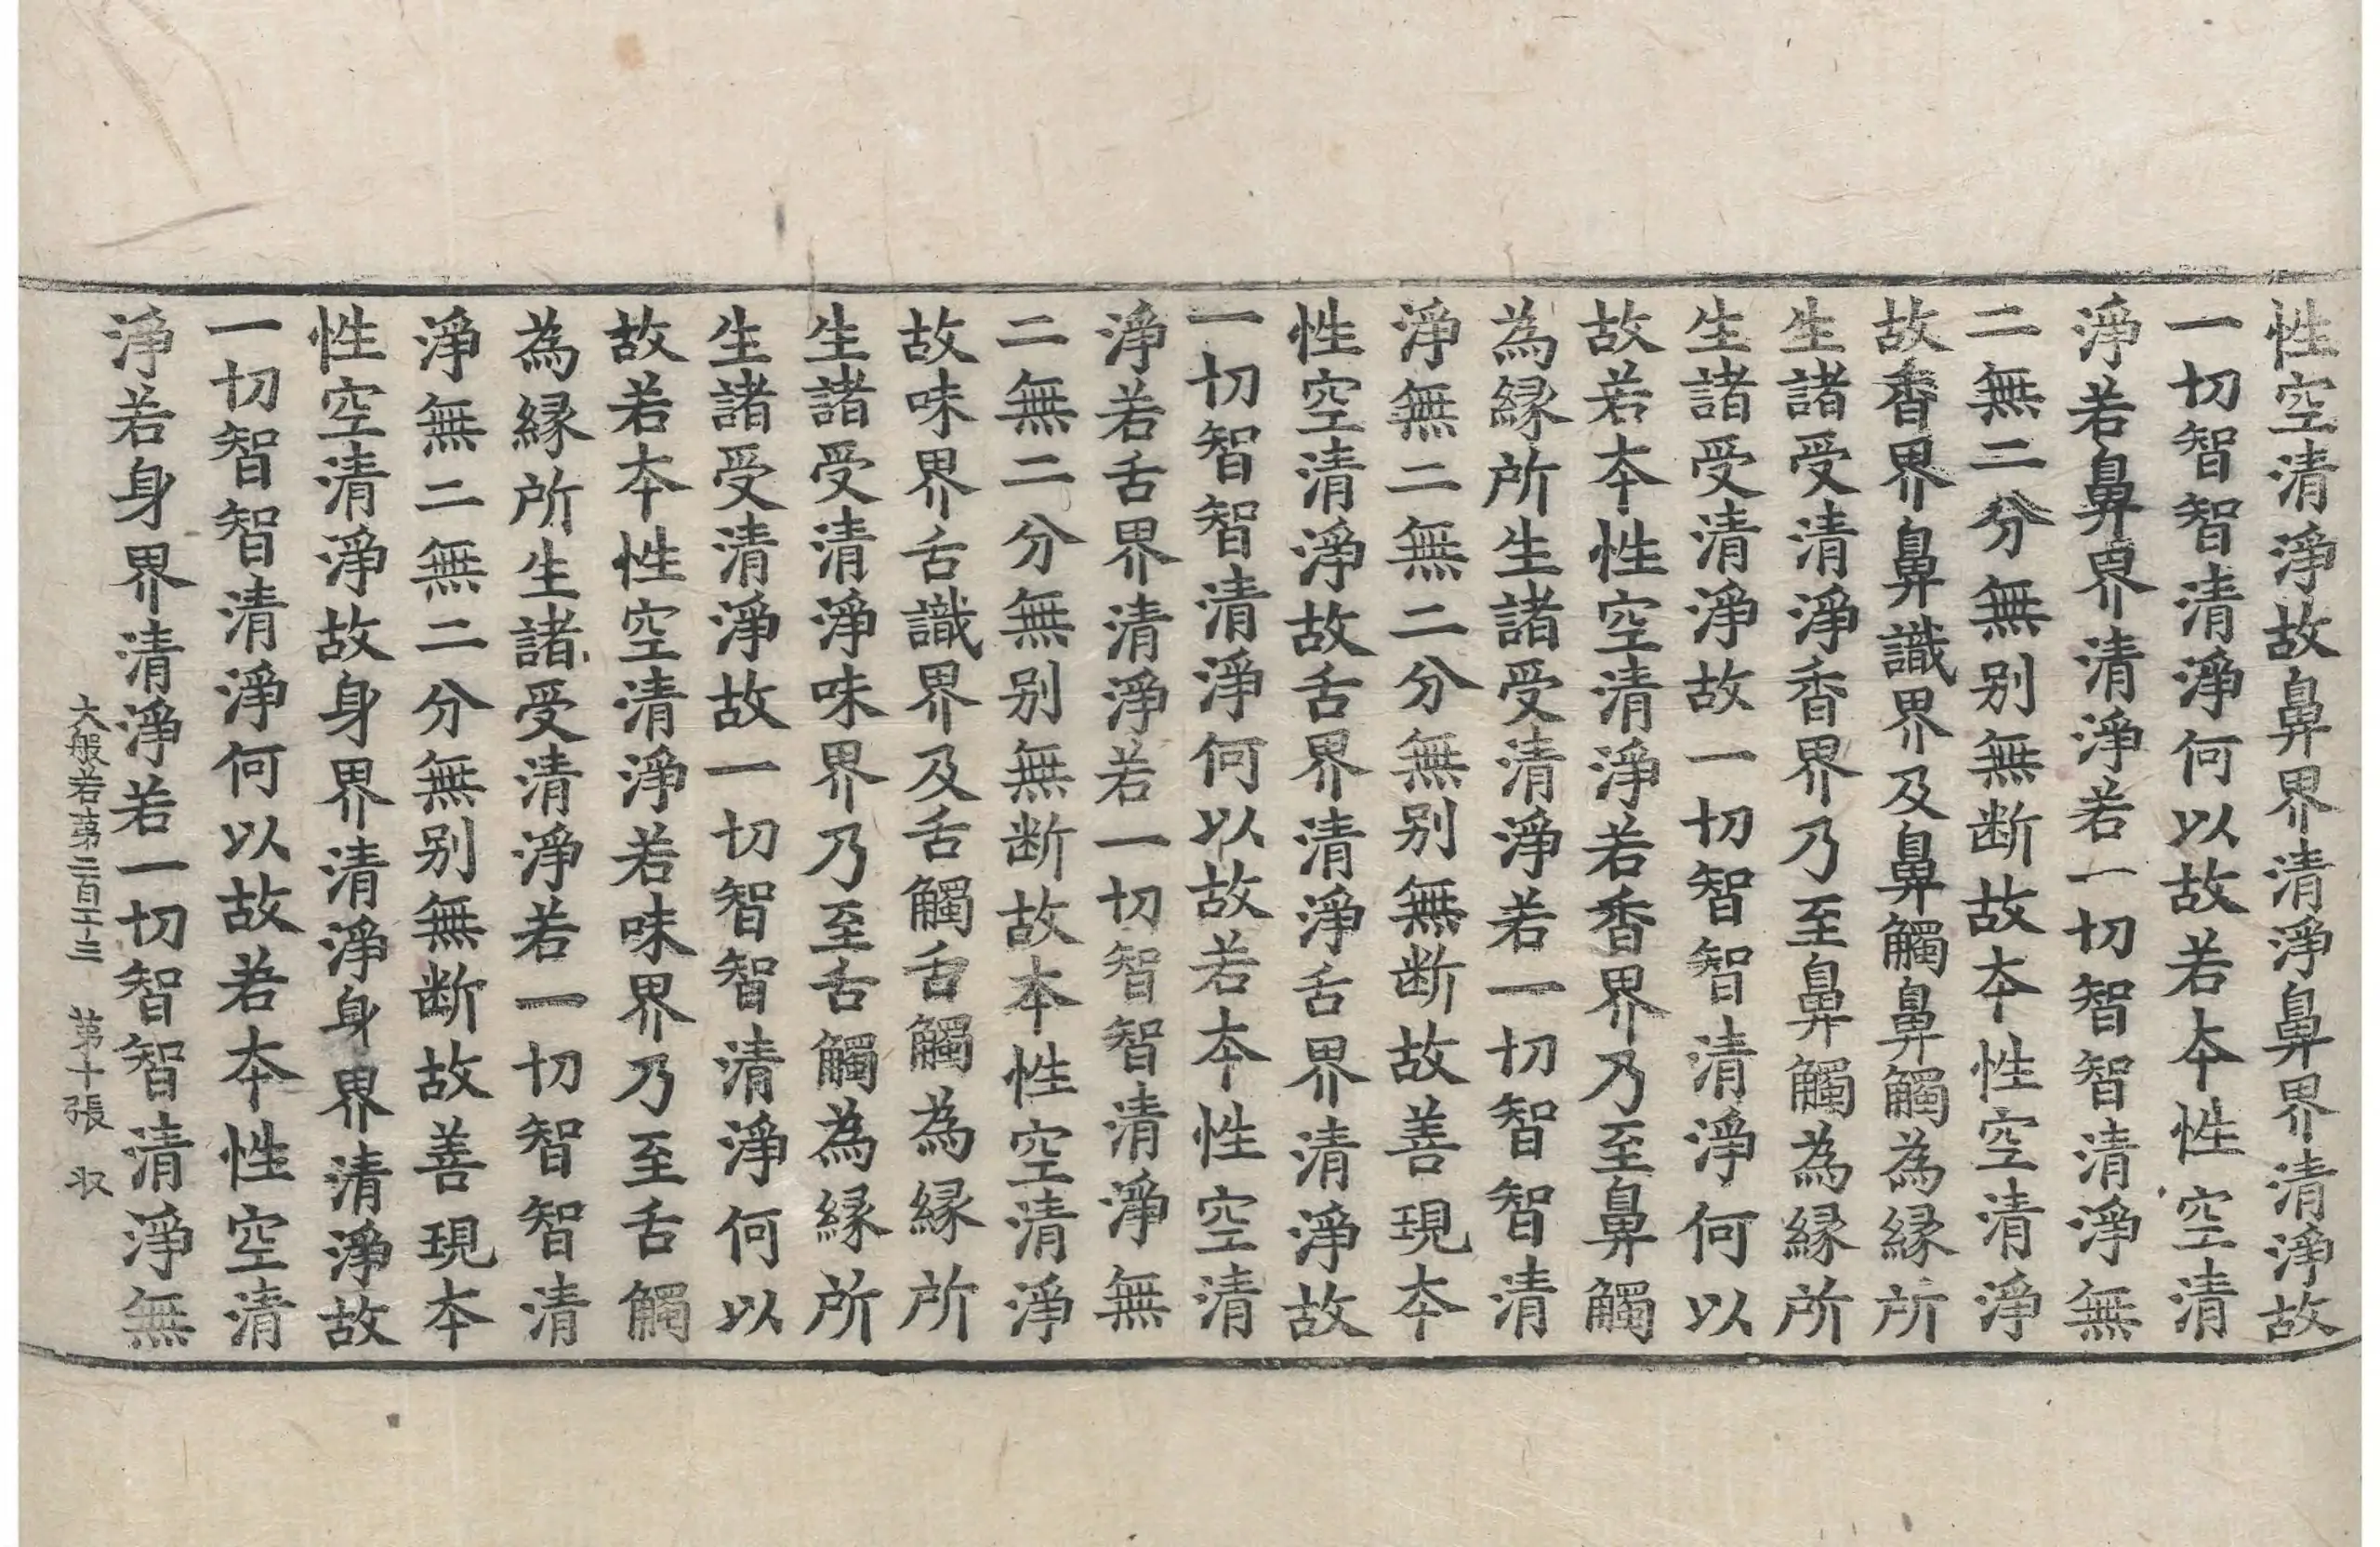 性空清淨故鼻界清淨鼻界清淨故
一切智智清淨何以故若本性空清
淨若鼻界清淨若一切智智清淨無
二無二分無别無断故本性空清淨
故香界鼻識界及鼻觸鼻觸為縁所
生諸受清淨香界乃至鼻觸為縁所
生諸受清淨故一切智智清淨何以
故若本性空清淨若香界乃至鼻觸
為縁所生諸受清淨若一切智智清
淨無二無二分無别無断故善現本
性空清淨故舌界清淨舌界清淨故
一切智智清淨何以故若本性空清
淨若舌界清淨若一切智智清淨無
二無二分無别無断故本性空清淨
故味界舌識界及舌觸舌觸為縁所
生諸受清淨味界乃至舌觸為縁所
生諸受清淨故一切智智清淨何以
故若本性空清淨若味界乃至舌觸
為縁所生諸受清淨若一切智智清
淨無二無二分無别無断故善現本
性空清淨故身界清淨身界清淨故
一切智智清淨何以故若本性空清
淨若身界清淨若一切智智清淨無
大般若第二百二十三 第十張 収